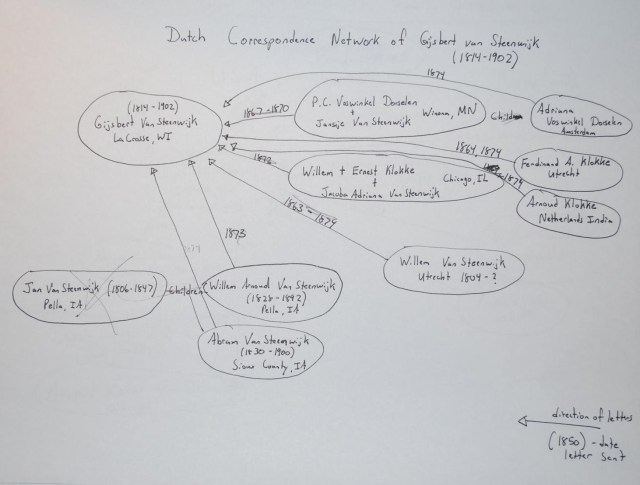 Dutch Correspondence Network of Gijsbert van Steenwijk
(1814-1902)
1874
(1814-1902)
Gijsbert Van Steenwijk
LaCrosse, WI
1867-1870
P.C. Voswinkel Dorselen
+
Jansije Van Steenwijk
Winona, MN
Children
Adriana
Voswinkel Dorselen
Amsterdam
1864, 1874
Ferdinand A. Klokke
Utrecht
1872
Willem + Ernest Klokke
+
Jacoba Adriana Van Steenwijk
Chicago, IL
1874
Arnoud Klokke
Netherlands India
1863-1874
1873
Willem Van Steenwijk
Utrecht 1804-?
Jan Van Steenwijk (1806-1847)
Pella, IA
Children
Willem Arnoud Van Steenwijk
(1828-1892)
Pella, IA
Abram Van Steenwijk
(1830-1900)
Sioux County, IA
direction of letters
(1850) - date
letter sent